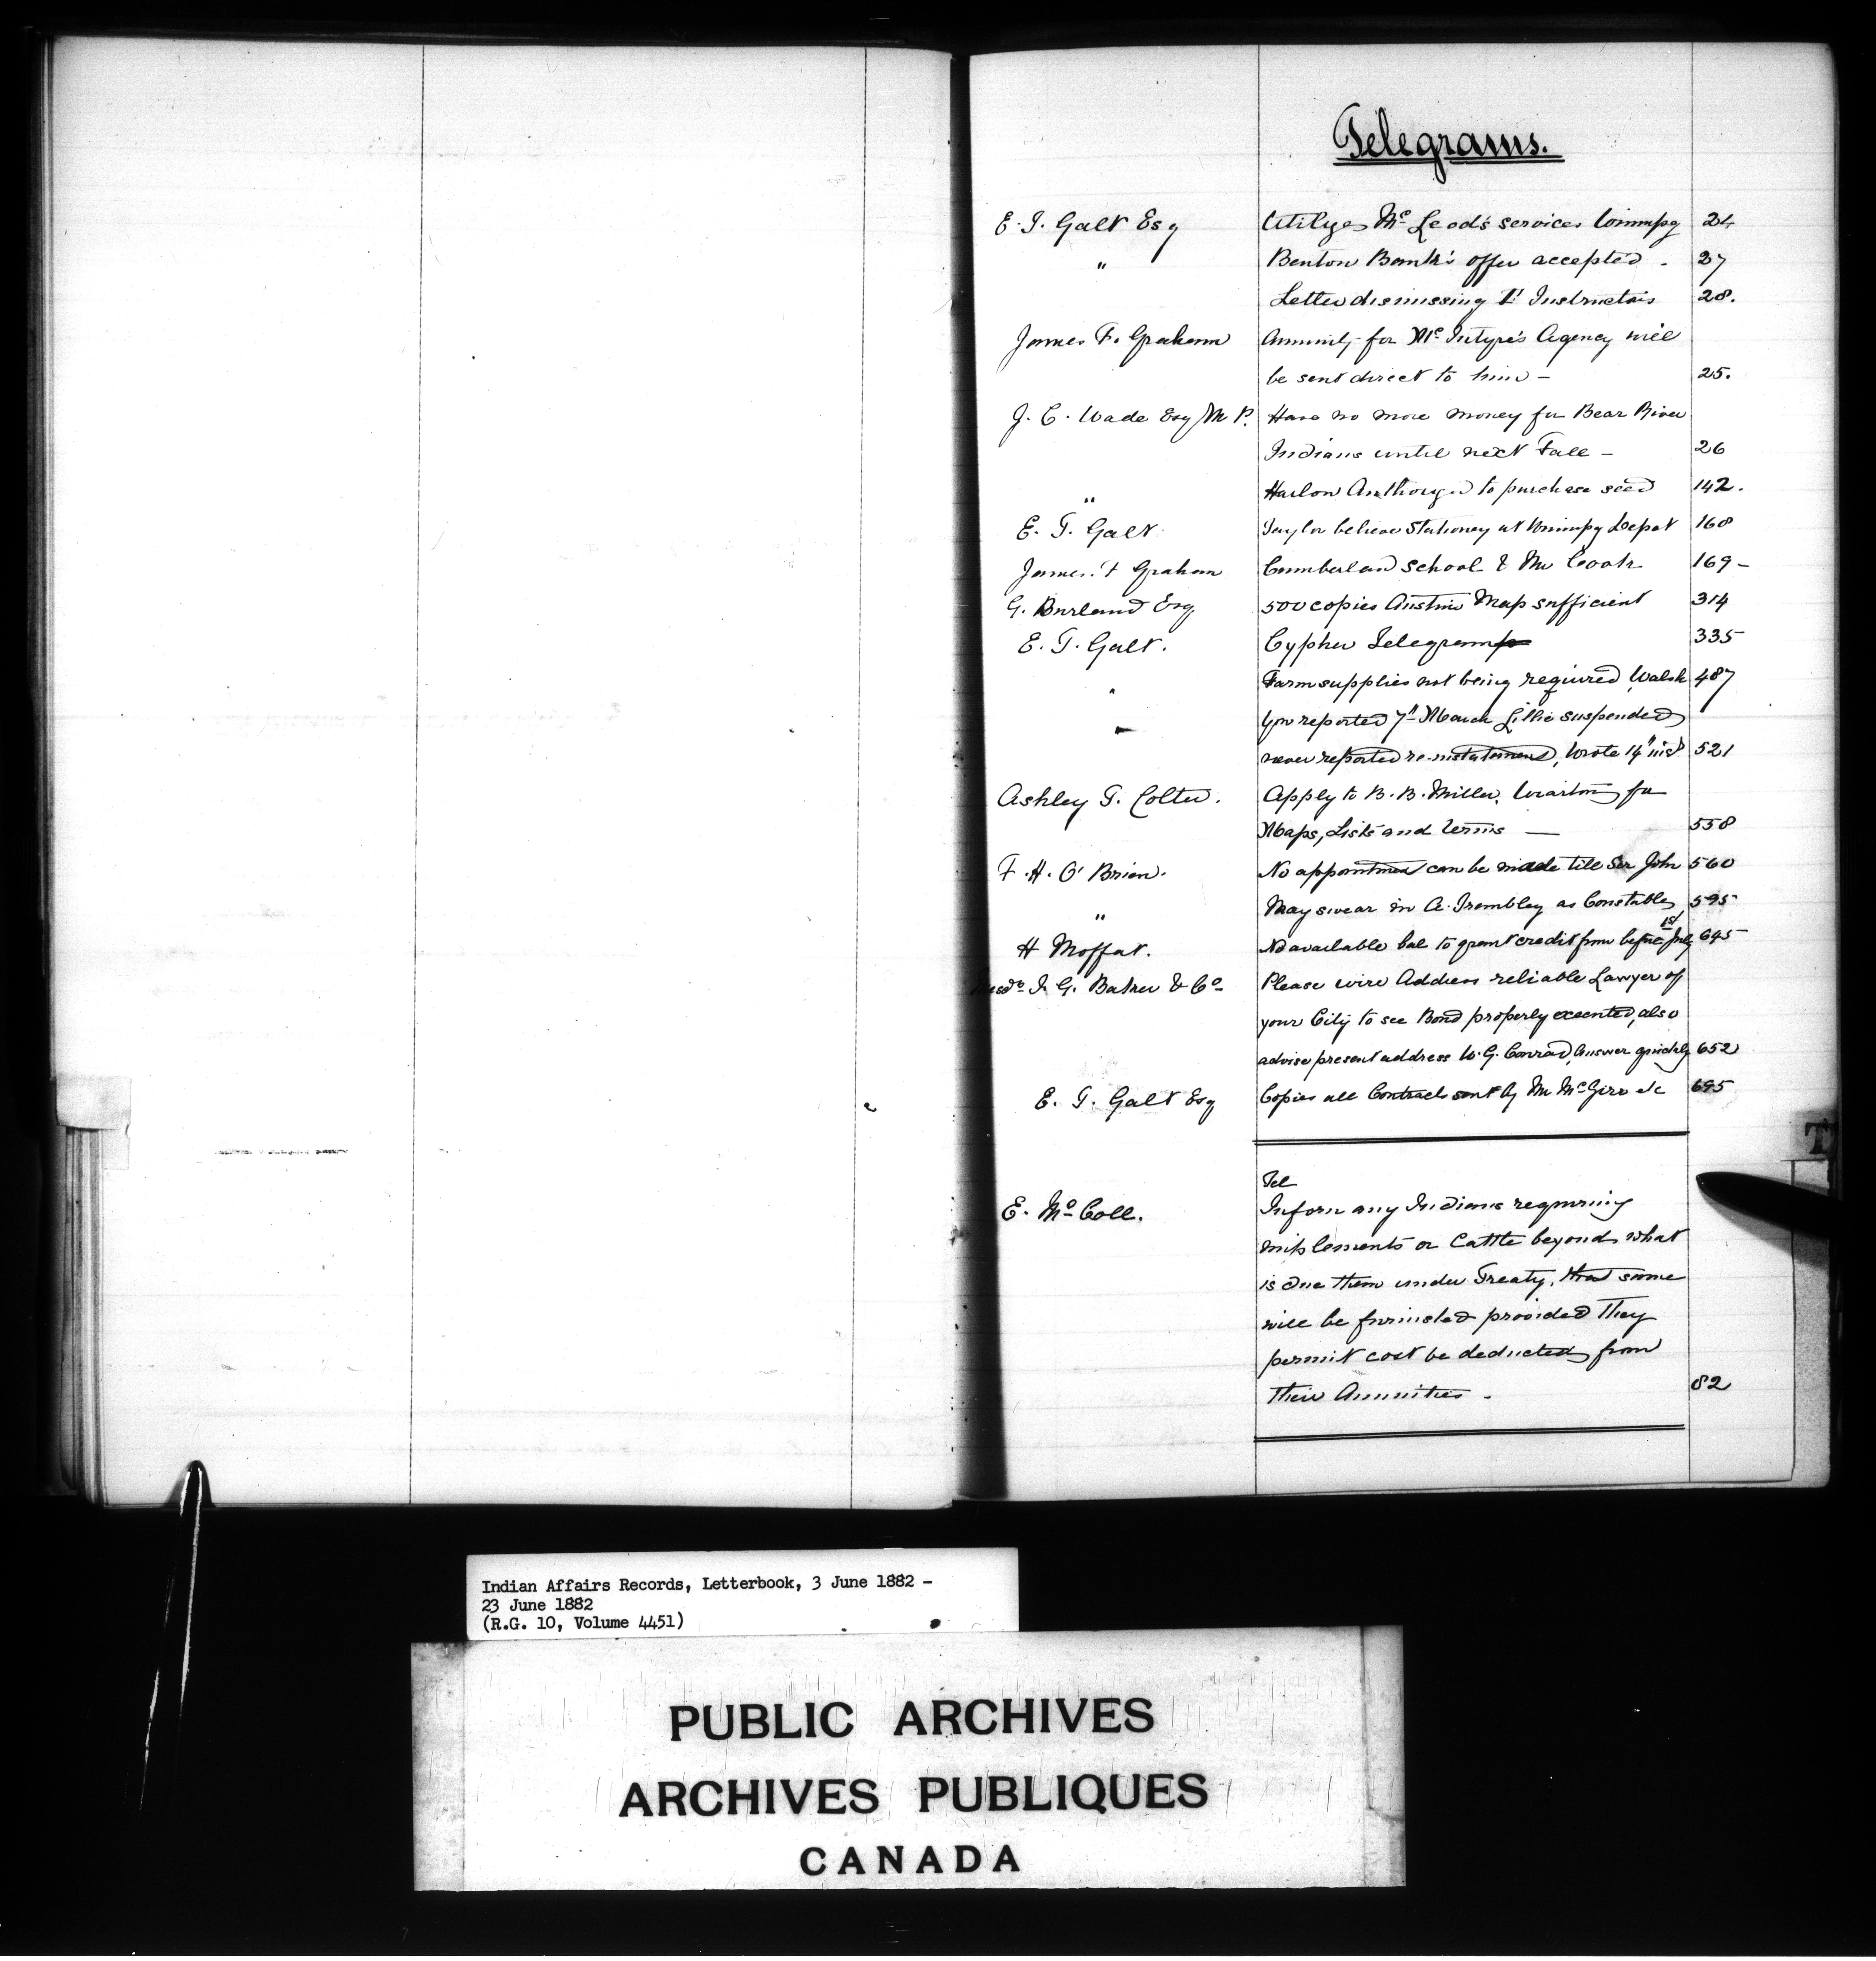 Telegrams.
E. T. Galt Esq Utilize Mc Leod's services Winnipeg 24
" Benton Bank's offer accepted - 27
Letter dismissing Instructors 28.
James F. Graham Annuity for Mc Intyre's Agency will
be sent direct to him - 25.
J. C. Wade Esq M P. Have no more money for Bear River
Indians until next Fall - 26
" Harlow Authorized to purchase seed 142.
E. T. Galt Taylor believe Stationery at Winnipg Depot 168
James. F Graham Cumberland School & Mr Cook 169-
G. Burland Esq 500 copies Austin's Map sufficient 314
E. T. Galt. Cypher Telegram 335
" Farm supplies not being required, Walsh 487
" You reported 7th March Lillie suspended
never reported re-instatement, Wrote 14" inst 521
Ashley G. Colter. Apply to B. B. Miller, Wiarton for
Maps, Lists and terms — 558
F. H. O'Brien. No appointment can be made till Sir John 560
" May swear in A. Trembley as Constable 595
H Moffat. No available bal to grant credit from before 1st July 645
I. G. Baker & Co Please wire Address reliable Lawyer of
your City to see Bond properly executed, also
advise present address W. G. Conrad, Answer quickly 652
E. T. Galt Esq Copies all Contracts sent by Mr McGirr &c 695
Tel
E. Mc Coll. Inform any Indians requiring
implements or Cattle beyond what
is due them under Treaty, that same
will be furnished provided They
permit cost be deducted from
their Annuities - 82
T
Indian Affairs Records, Letterbook, 3 June 1882 -
23 June 1882
(R.G. 10, Volume 4451)
PUBLIC ARCHIVES
ARCHIVES PUBLIQUES
CANADA